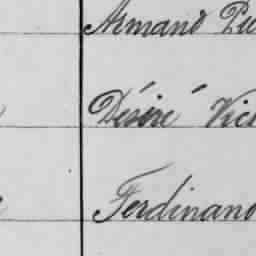 Armand
Désiré Vic
Ferdinand